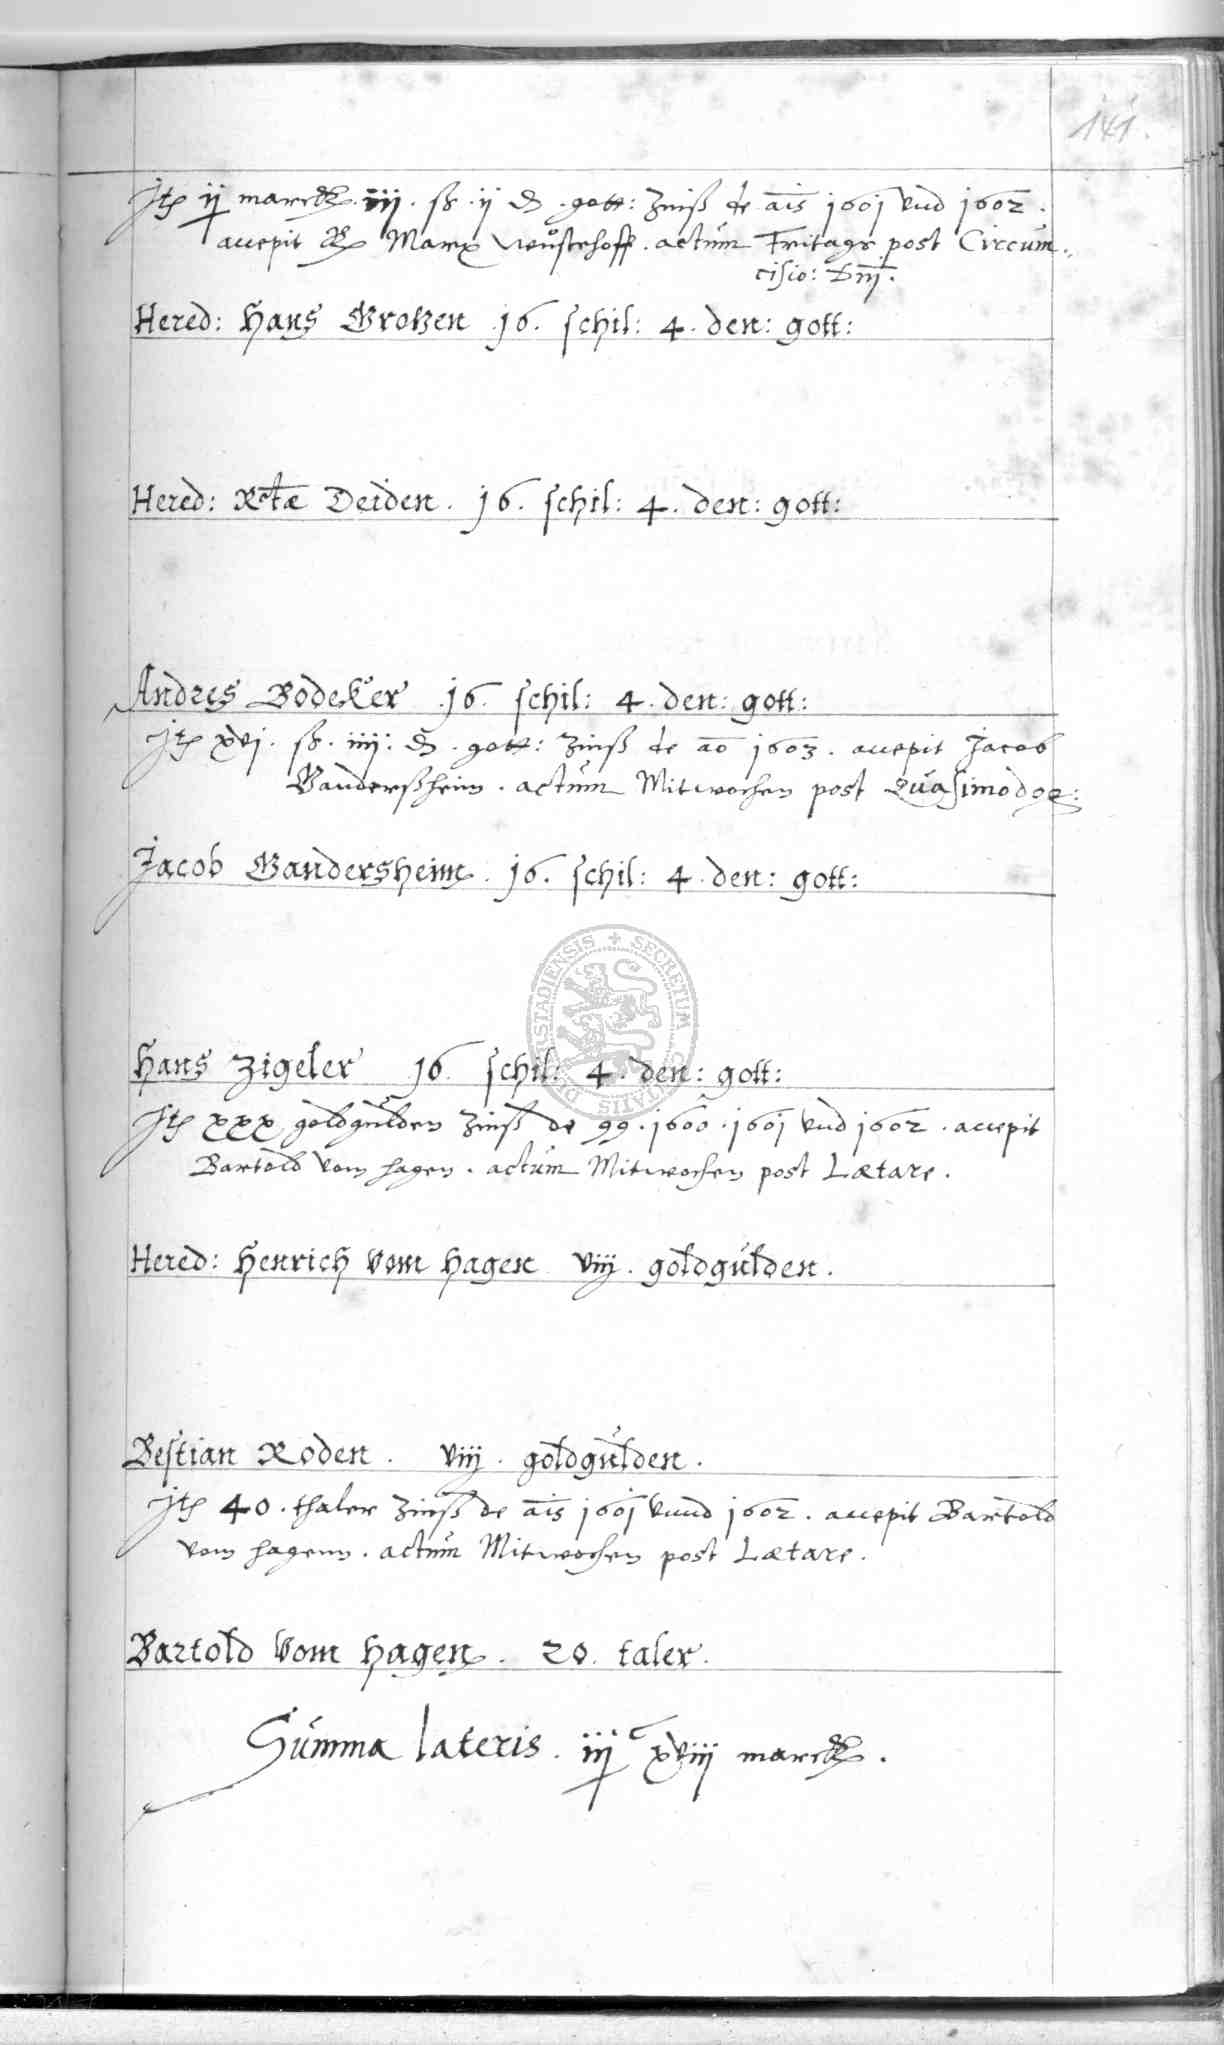 141.
Jtē ij marck. iij. ß. ij ₰. gott: Zinß de ais 1601 vnd 1602.
accepit Marx Wüstehoff. actum Fritags post Circum
cisio: Dnj.
Hered: Hans Grotzen 16. schil: 4. den: gott:
Hered: Deiden. 16. schil: 4. den: gott:
Andres Bodeker 16. schil: 4. den: gott:
Jtē xvj. ß. iiij. ₰. gott: Zinß de ao 1603. accepit Jacob
Ganderßheim. actum Mitwochen post Quasimodoge:
Jacob Gandersheim. 16. schil: 4. den: gott:
DERSTADIENSIS + SECRETUM CIVITATIS
Hans Zigeler 16. schil: 4. den: gott:
Jtē xxx goldgulden Zinß de 99. 1600. 1601 vnd 1602. accepit
Bartold vom hagen. actum Mitwochen post Lætare.
Hered: Henrich vom hagen viij. goldgulden.
Bestian Roden. viij. goldgulden.
Jtē 40. thaler Zinß de ais 1601 vnnd 1602. accepit Bartold
vom hagenn. actum Mitwochen post Lætare.
Bartold vom hagen. 20. taler.
Summa lateris. iij c xviij marck.